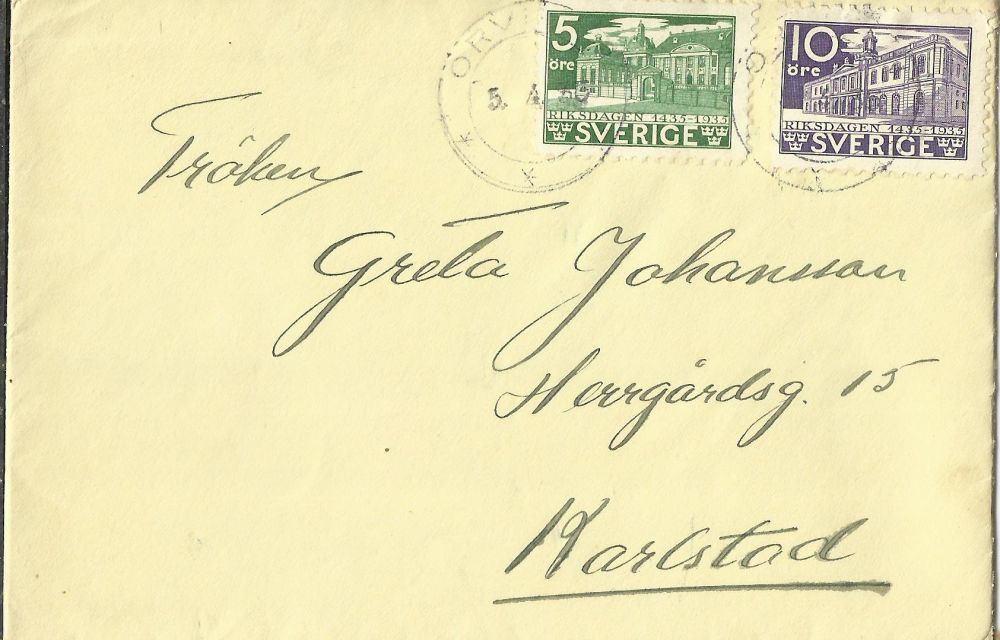 5 öre
RIKSDAGEN 1435-1935
SVERIGE
10 öre
RIKSDAGEN 1435-1935
SVERIGE
5. 4.
Fröken
Greta Johansson
Herrgårdsg. 15
Karlstad